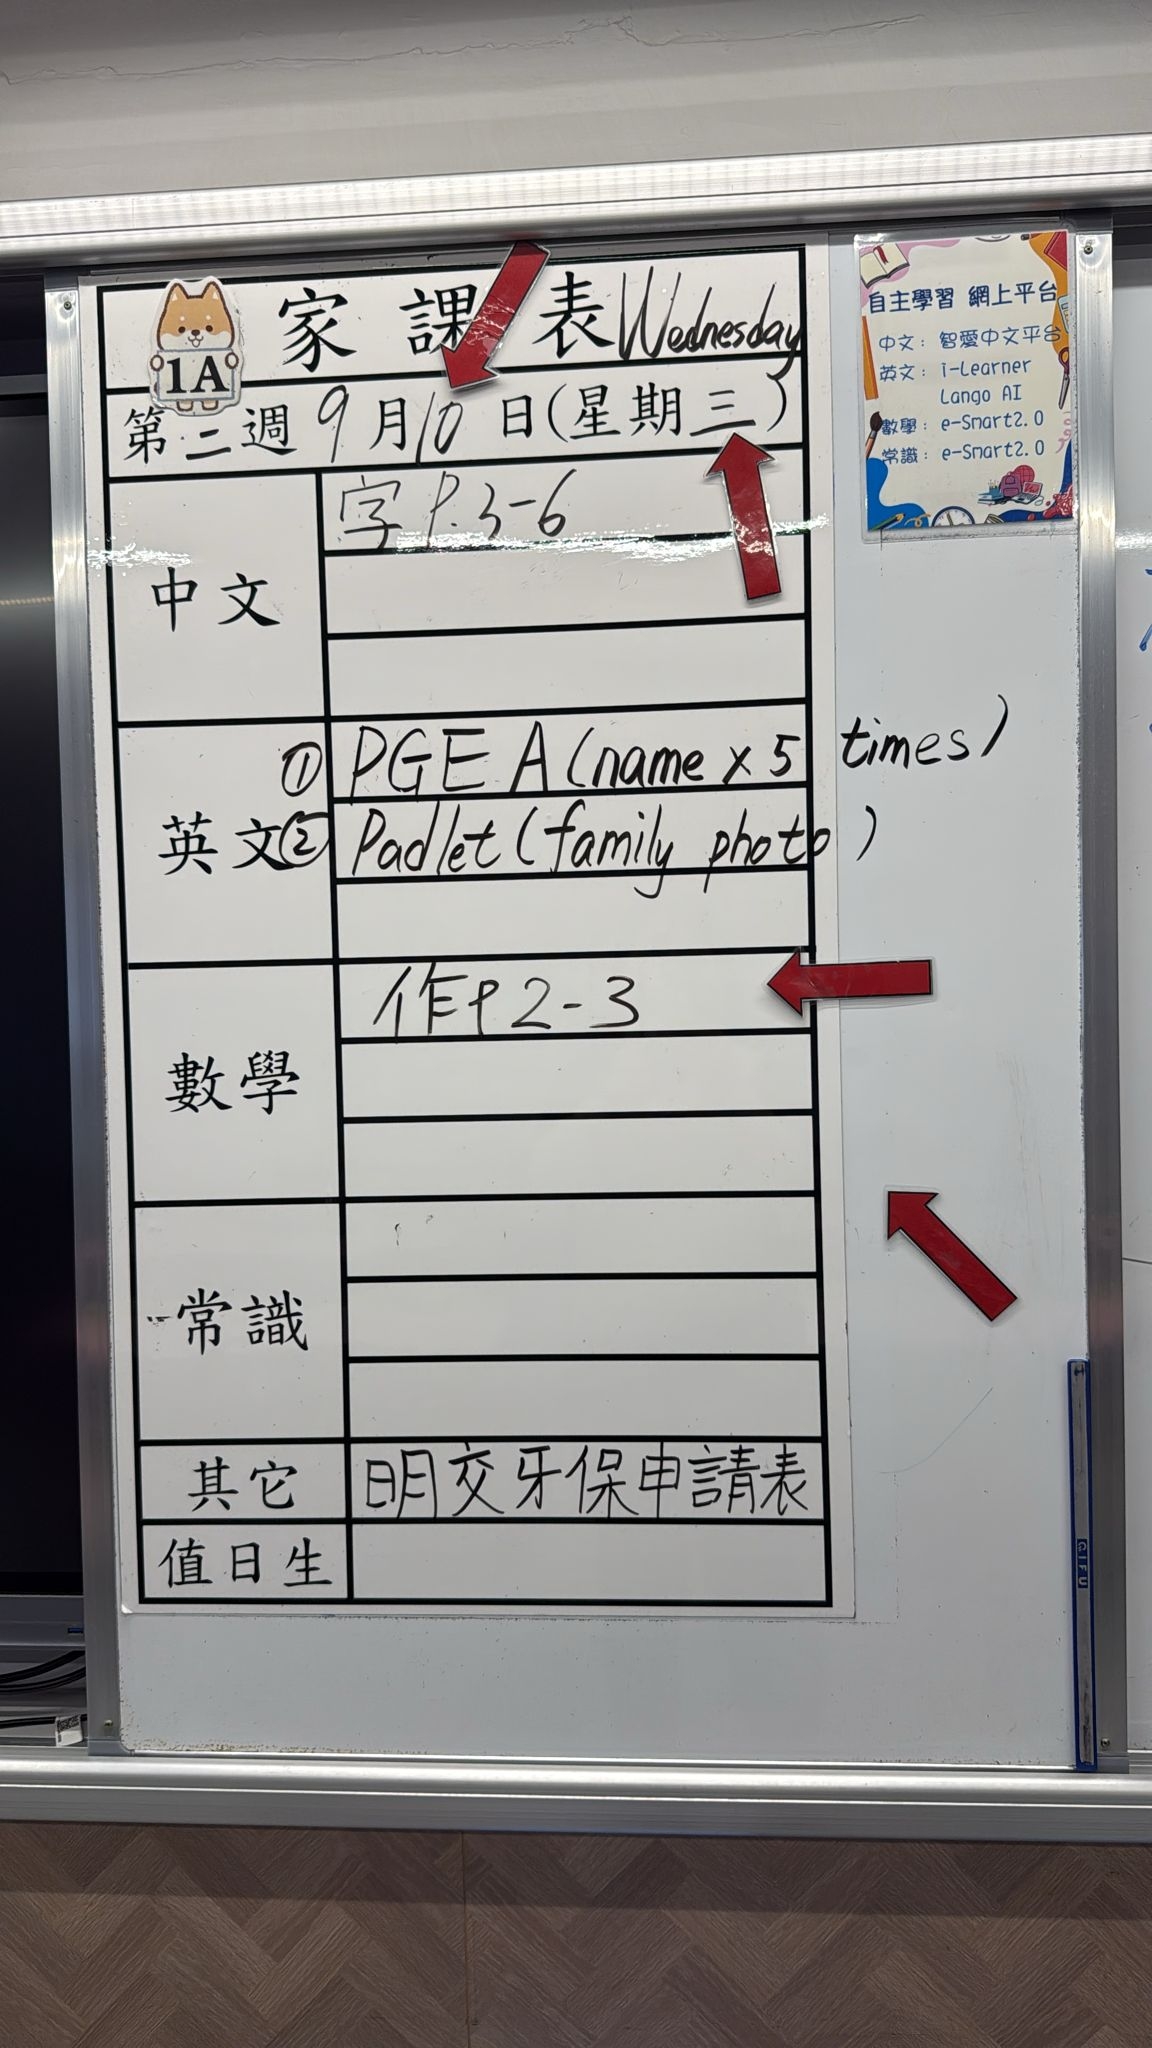 家課表 Wednesday
1A
第二週 9月10日(星期三)
中文
字 P.3-6
英文
① PGE A (name x 5 times)
② Padlet (family photo)
數學
作P2-3
常識
其它
明交牙保申請表
值日生
自主學習 網上平台
中文: 智愛中文平台
英文: i-Learner
Lango AI
數學: e-Smart2.0
常識: e-Smart2.0
GIFU